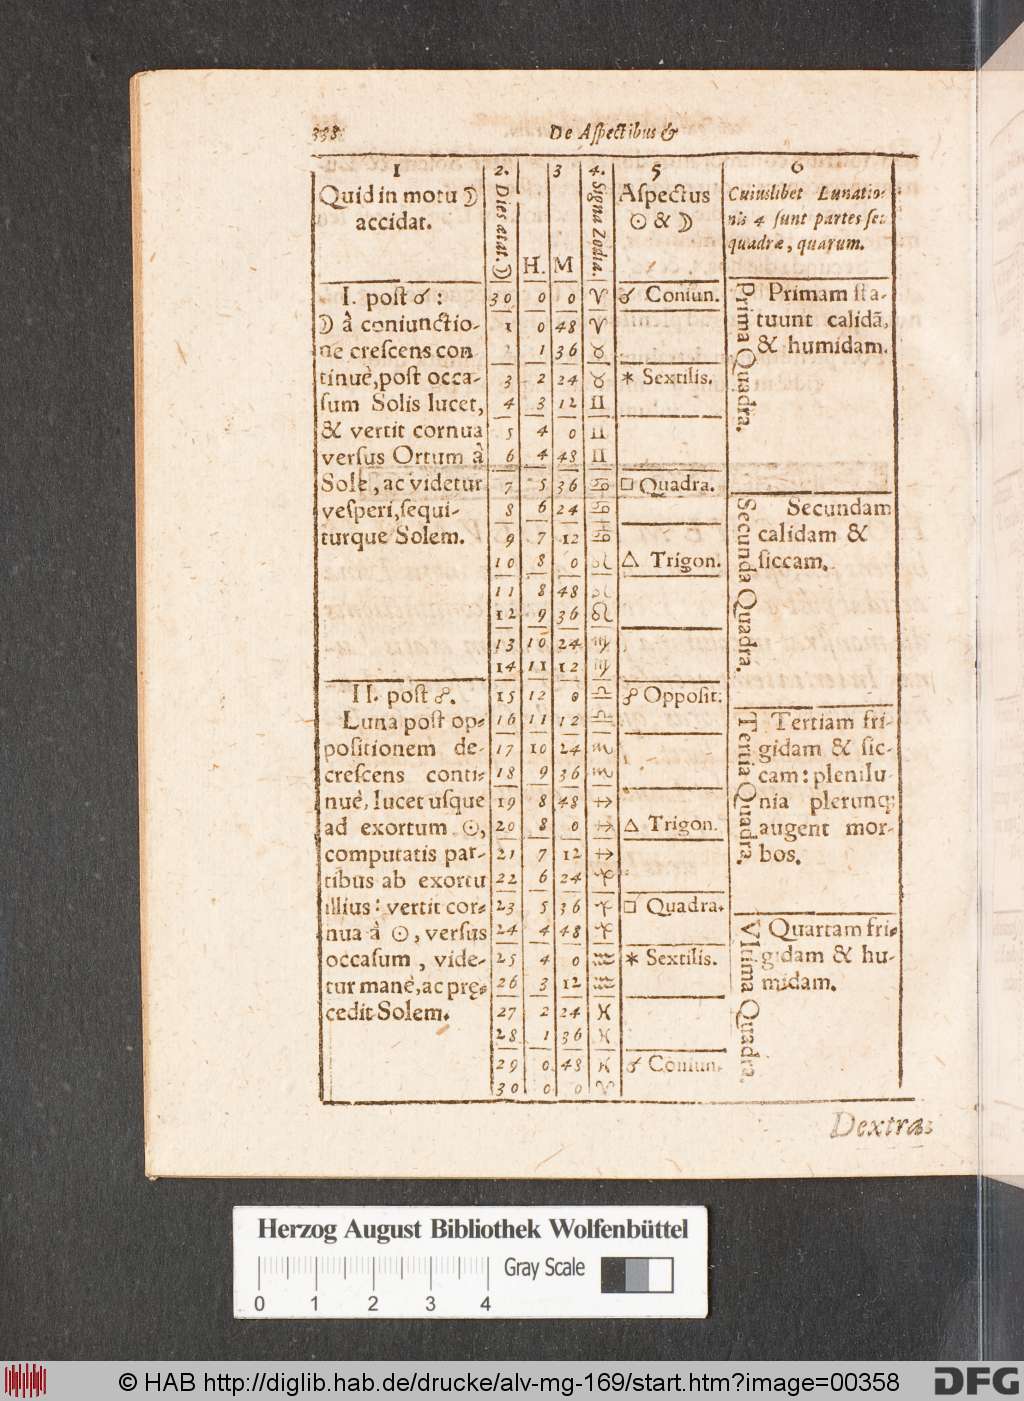 338 De Aſpectibus &
1 2. 3 4. 5 6
Quid in motu ☽
accidat.
Dies ætat. ☽
H. M
Signa Zodia.
Aſpectus
☉ & ☽
Cuiuslibet Lunatio-
nis 4 ſunt partes ſeu
quadræ, quarum.
I. poſt ☌ :
☽ à coniunctio-
ne creſcens con
tinuè, poſt occa-
ſum Solis lucet,
& vertit cornua
verſus Ortum à
Sole, ac videtur
veſperi, ſequi-
turque Solem.
II. poſt ☍.
Luna poſt op-
poſitionem de-
creſcens conti-
nuè, lucet uſque
ad exortum ☉,
computatis par-
tibus ab exortu
illius: vertit cor-
nua à ☉, verſus
occaſum, vide-
tur manè, ac prę-
cedit Solem.
30 0 0 ♈ ☌ Coniun.
1 0 48 ♈
2 1 36 ♉
3 2 24 ♉ * Sextilis.
4 3 12 ♊
5 4 0 ♊
6 4 48 ♊
7 5 36 ♋ □ Quadra.
8 6 24 ♋
9 7 12 ♋
10 8 0 ♌ △ Trigon.
11 8 48 ♌
12 9 36 ♌
13 10 24 ♍
14 11 12 ♍
15 12 0 ♎ ☍ Oppoſit:
16 11 12 ♎
17 10 24 ♏
18 9 36 ♏
19 8 48 ♐
20 8 0 ♐ △ Trigon.
21 7 12 ♐
22 6 24 ♑
23 5 36 ♑ □ Quadra.
24 4 48 ♑
25 4 0 ♒ * Sextilis.
26 3 12 ♒
27 2 24 ♓
28 1 36 ♓
29 0 48 ♓ ☌ Coniun.
30 0 0 ♈
Prima Quadra.
Primam ſta-
tuunt calidā,
& humidam.
Secunda Quadra.
Secundam
calidam &
ſiccam.
Tertia Quadra.
Tertiam fri-
gidam & ſic-
cam: plenilu-
nia plerunq;
augent mor-
bos.
Vltima Quadra.
Quartam fri-
gidam & hu-
midam.
Dextra:
Herzog August Bibliothek Wolfenbüttel
Gray Scale
0 1 2 3 4
© HAB http://diglib.hab.de/drucke/alv-mg-169/start.htm?image=00358
DFG